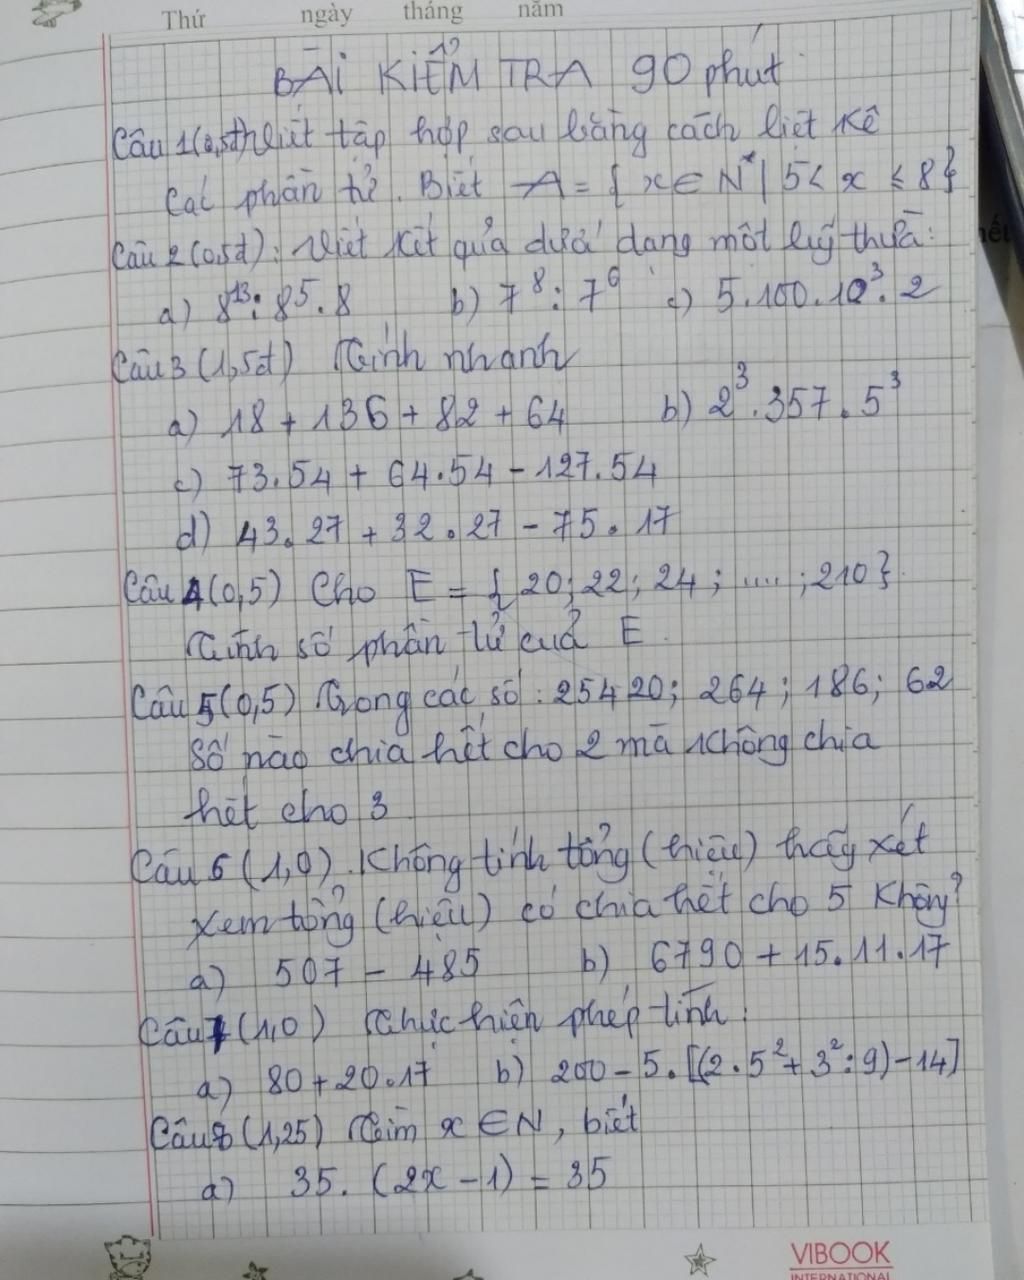 Thứ ngày tháng năm
BÀI KIỂM TRA 90 phút
Câu 1(0,5đ) Viết tập hợp sau bằng cách liệt kê
các phần tử. Biết A = { x ∈ N* | 5 < x ≤ 8 }
Câu 2 (0,5đ): Viết kết quả dưới dạng một lũy thừa:
a) 8¹³ : 8⁵ . 8 b) 7⁸ : 7⁶ c) 5.100.10³. 2
Câu 3 (1,5đ) Tính nhanh
a) 18 + 136 + 82 + 64 b) 2³ . 357 . 5³
c) 73.54 + 64.54 - 127.54
d) 43.27 + 32.27 - 75.17
Câu 4 (0,5) Cho E = { 20; 22; 24; .... ; 210 }.
Tính số phần tử của E.
Câu 5 (0,5) Trong các số : 25420; 264; 186; 62
số nào chia hết cho 2 mà không chia
hết cho 3
Câu 6 (1,0). Không tính tổng (hiệu) hãy xét
xem tổng (hiệu) có chia hết cho 5 không?
a) 507 - 485 b) 6790 + 15.11.17
Câu 7 (1,0) Thực hiện phép tính:
a) 80 + 20.17 b) 200 - 5.[(2.5² + 3² : 9) - 14]
Câu 8 (1,25) Tìm x ∈ N, biết
a) 35. (2x - 1) = 35
VIBOOK
INTERNATIONAL